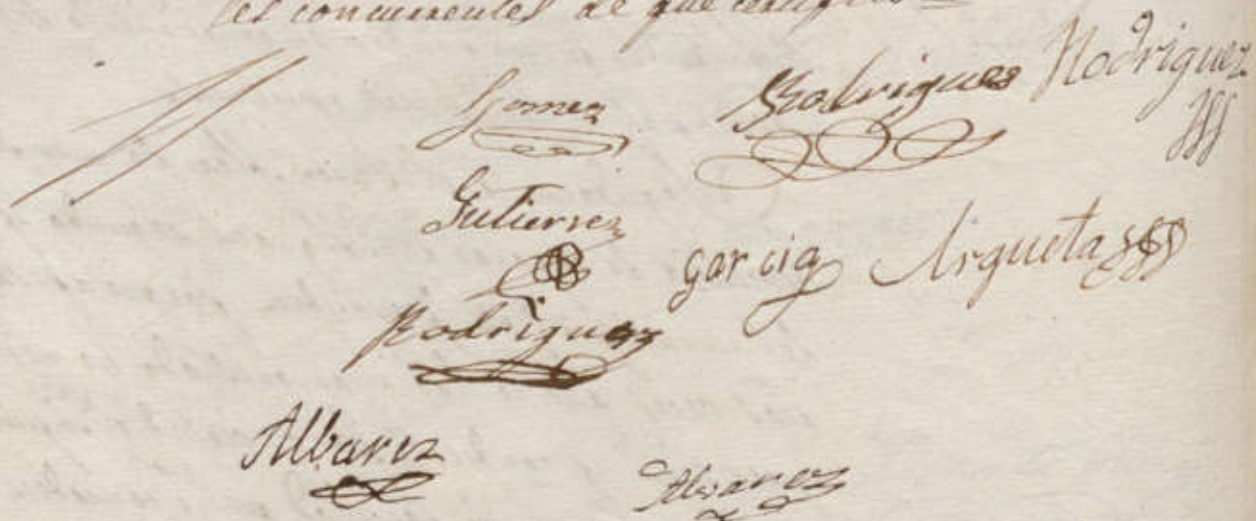 los concurrentes de que certifico=
Gomez Rodrigues Rodriguez
Gutierrez
garcia Argueta
Rodriguez
Albarez
Alvarez